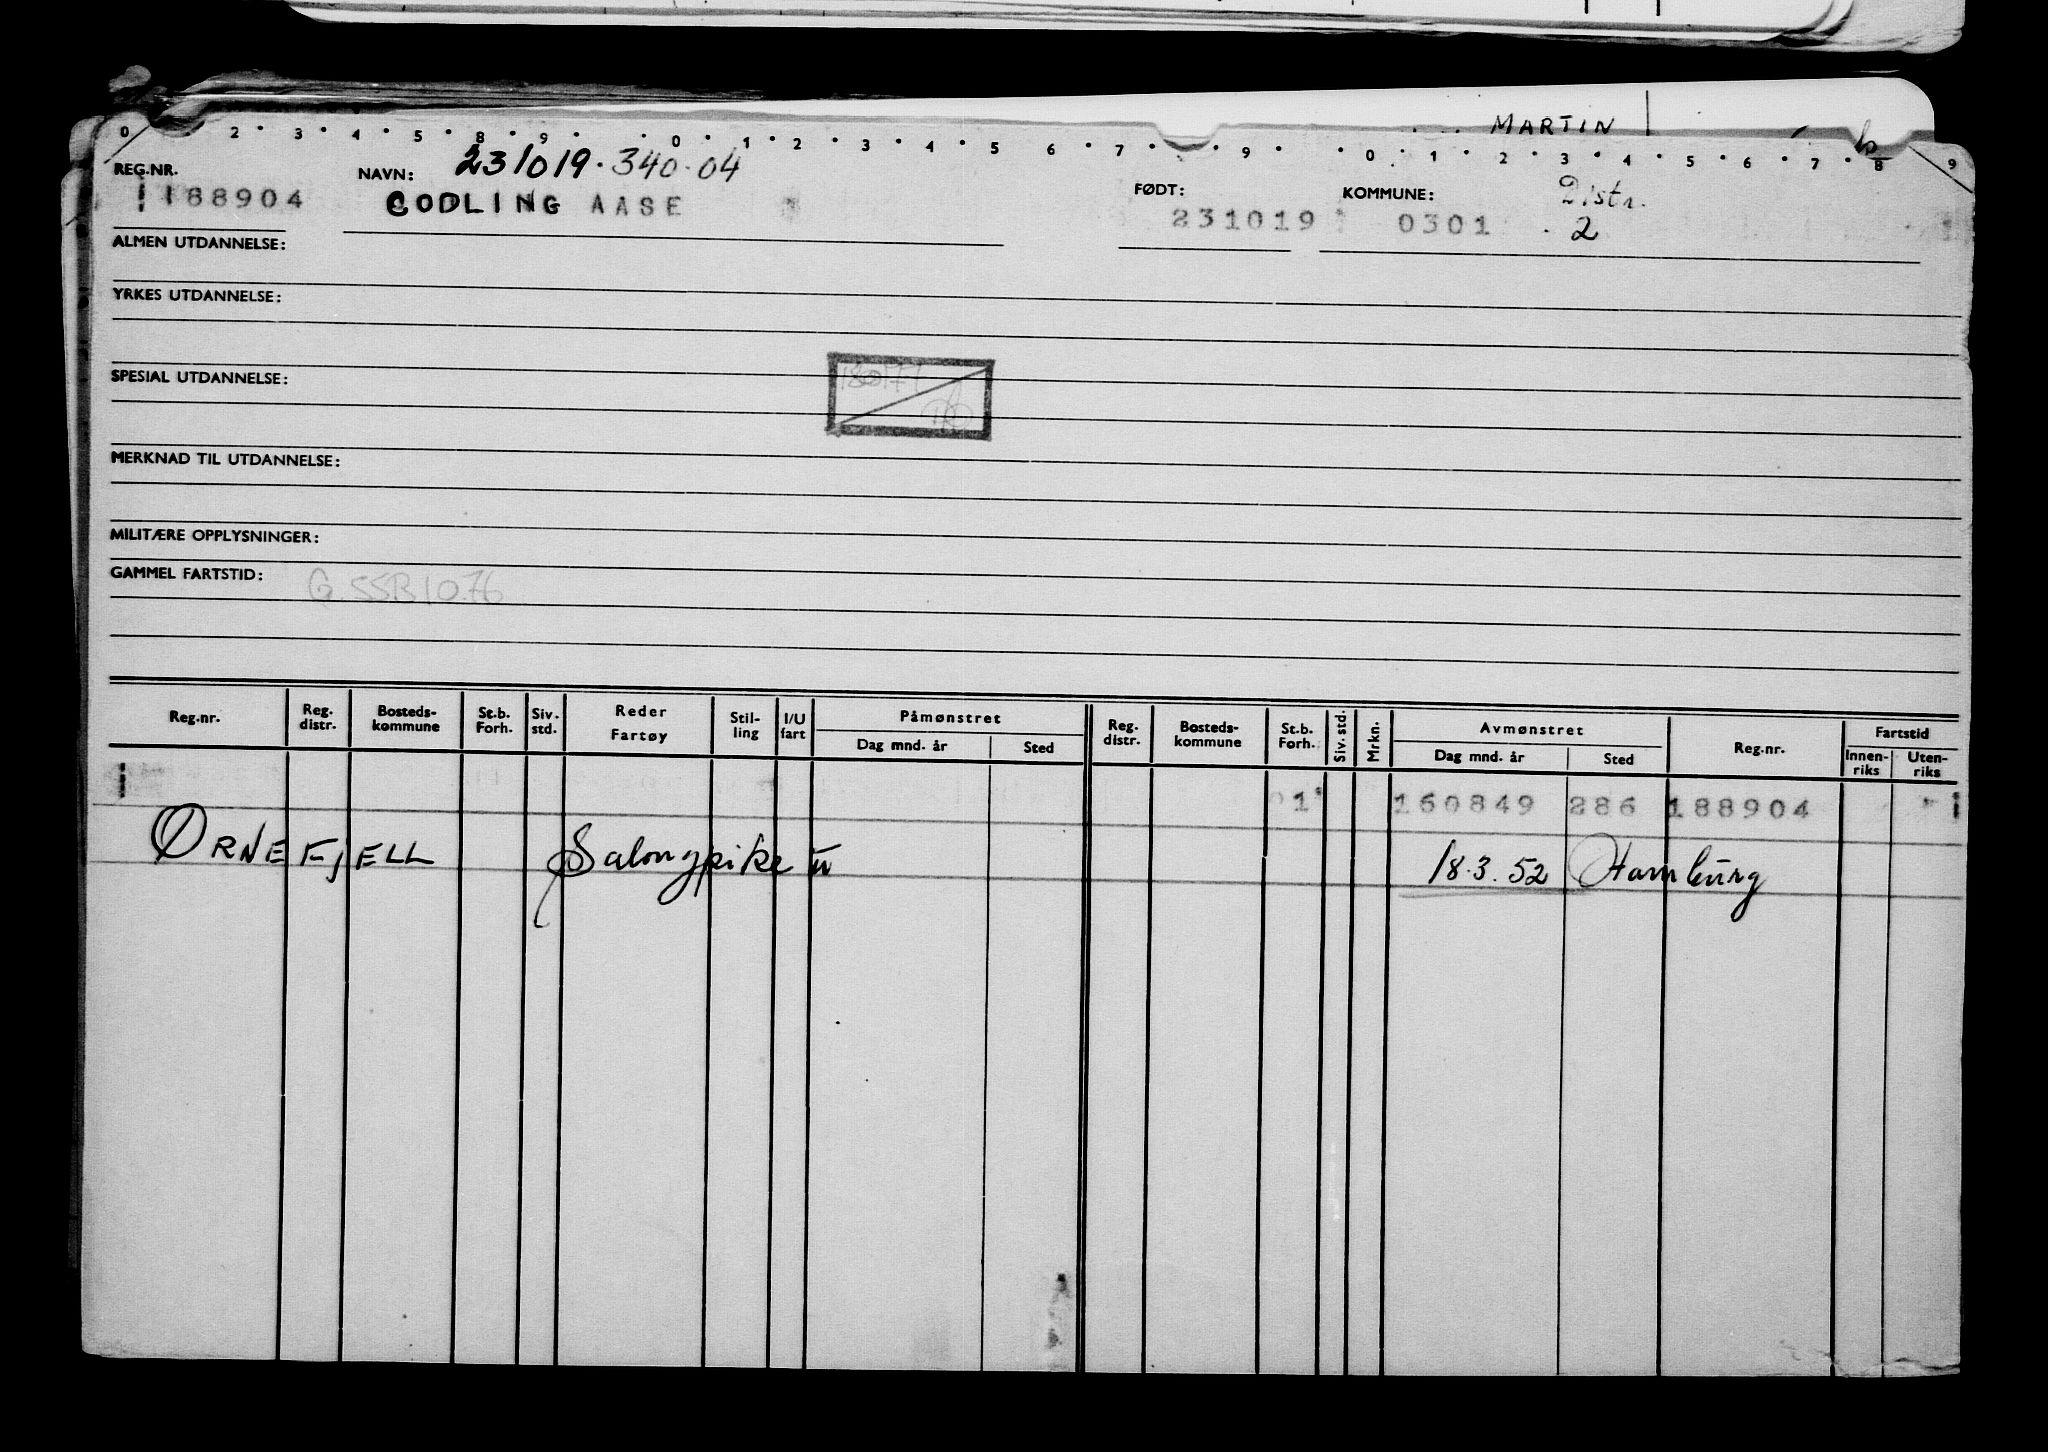 MARTIN
0 2 3 4 5 8 9 0 1 2 3 4 5 6 7 9 0 1 2 3 4 5 6 7 8 9
REG.NR. NAVN: 231019.340.04 FØDT: KOMMUNE: Distr.
188904 GODLING AASE 231019 0301 2
ALMEN UTDANNELSE:
YRKES UTDANNELSE:
SPESIAL UTDANNELSE:
MERKNAD TIL UTDANNELSE:
MILITÆRE OPPLYSNINGER:
GAMMEL FARTSTID: G. SSB 10.76
Reg.nr. Reg. distr. Bosteds-kommune St.b. Forh. Siv. std. Reder Fartøy Stil-ling I/U fart Påmønstret Dag mnd. år Sted Reg. distr. Bosteds-kommune St.b. Forh. Siv. std. Mrkn. Avmønstret Dag mnd. år Sted Reg.nr. Fartstid Innen-riks Uten-riks
1 160849 286 188904
ØRNEFJELL Salongpike u 18.3.52 Hamburg